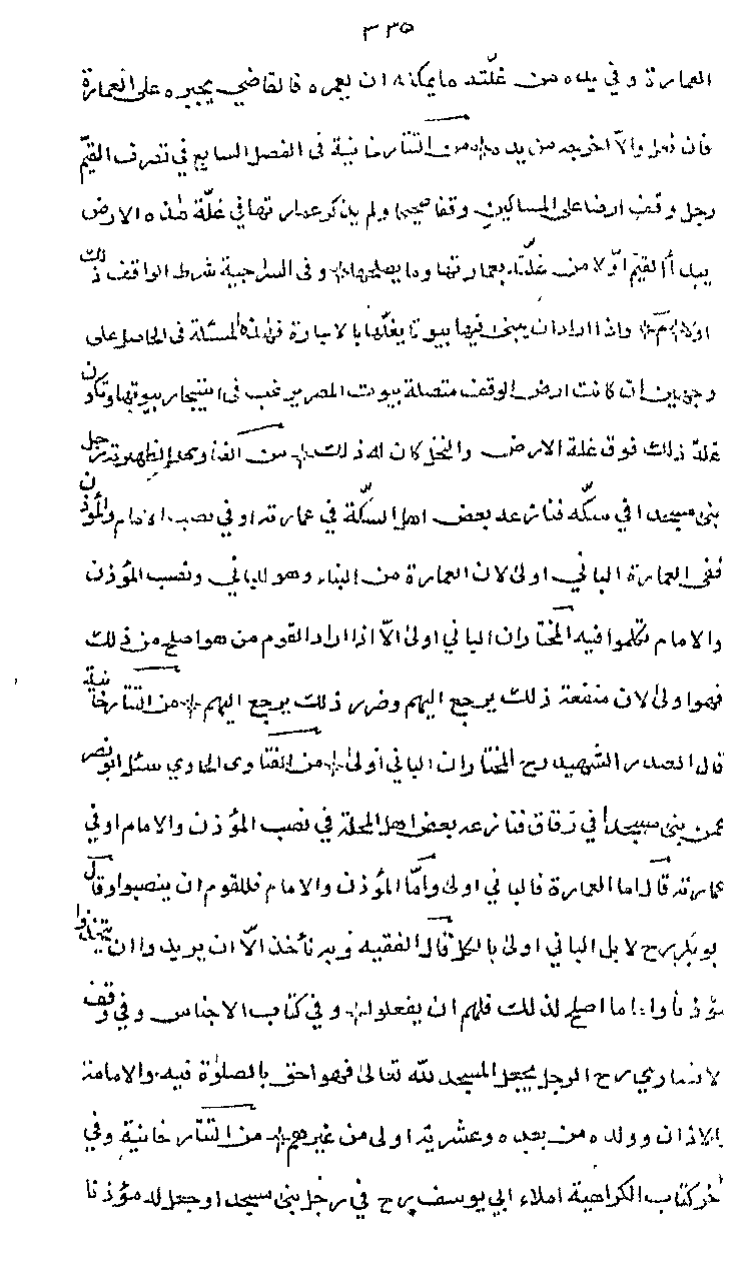 ٣٣٥
العمارة وفي يده من غلّته ما يمكنه ان يعمره فالقاضي يجبره على العمارة
فان فعل والّا اخرجه من يده من التتارخانية فى الفصل السابع في تصرف القيّم
رجل وقف ارضا على المساكين وقفا صحيحا ولم يذكر عمارتها في غلّة هذه الارض
يبدأ القيّم اوّلا من غلّتها بعمارتها وما يصلحها وفى السراجية شرط الواقف ذلك
اولا واذا اراد ان يبنى فيها بيوتا يغلّها بالاجارة فهذه المسئلة فى الحاصل على
وجهين ان كانت ارض الوقف متصلة ببيوت المصر يرغب فى استيجار بيوتها وتكون
غلة ذلك فوق غلة الارض والنخل كان له ذلك من الفتاوى الظهيرية رجل
بنى مسجدا في سكّه فنازعه بعض اهل السكّة في عمارته او في نصب الامام والمؤذن
ففى العمارة الباني اولى لان العمارة من البناء وهو للباني ونصب المؤذن
والامام تكلموا فيه المختار ان الباني اولى الّا اذا اراد القوم من هو اصلح من ذلك
فهو اولى لان منفعة ذلك يرجع اليهم وضرر ذلك يرجع اليهم من التتارخانية
قال الصدر الشهيد رح المختار ان الباني اولى من الفتاوى الحاوي سئل ابو نصر
عمن بنى مسجدا في زقاق فنازعه بعض اهل المحلة في نصب المؤذن والامام او في
عمارته قال اما العمارة فالباني اولى وامّا المؤذن والامام فللقوم ان ينصبوا وقال
بو بكر رح لا بل الباني اولى بالكل قال الفقيه وبه نأخذ الّا ان يريدوا ان يتخذوا
مؤذنا واماما اصلح لذلك فلهم ان يفعلوا وفي كتاب الاجناس وفي وقف
لانصاري رح الرجل يجعل المسجد لله تعالى فهو احق بالصلوة فيه والامامة
بالاذان وولده من بعده وعشريته اولى من غيرهم من التتارخانية وفي
آخر كتاب الكراهية املاء ابي يوسف رح في رجل بنى مسجدا وجعل له مؤذنا